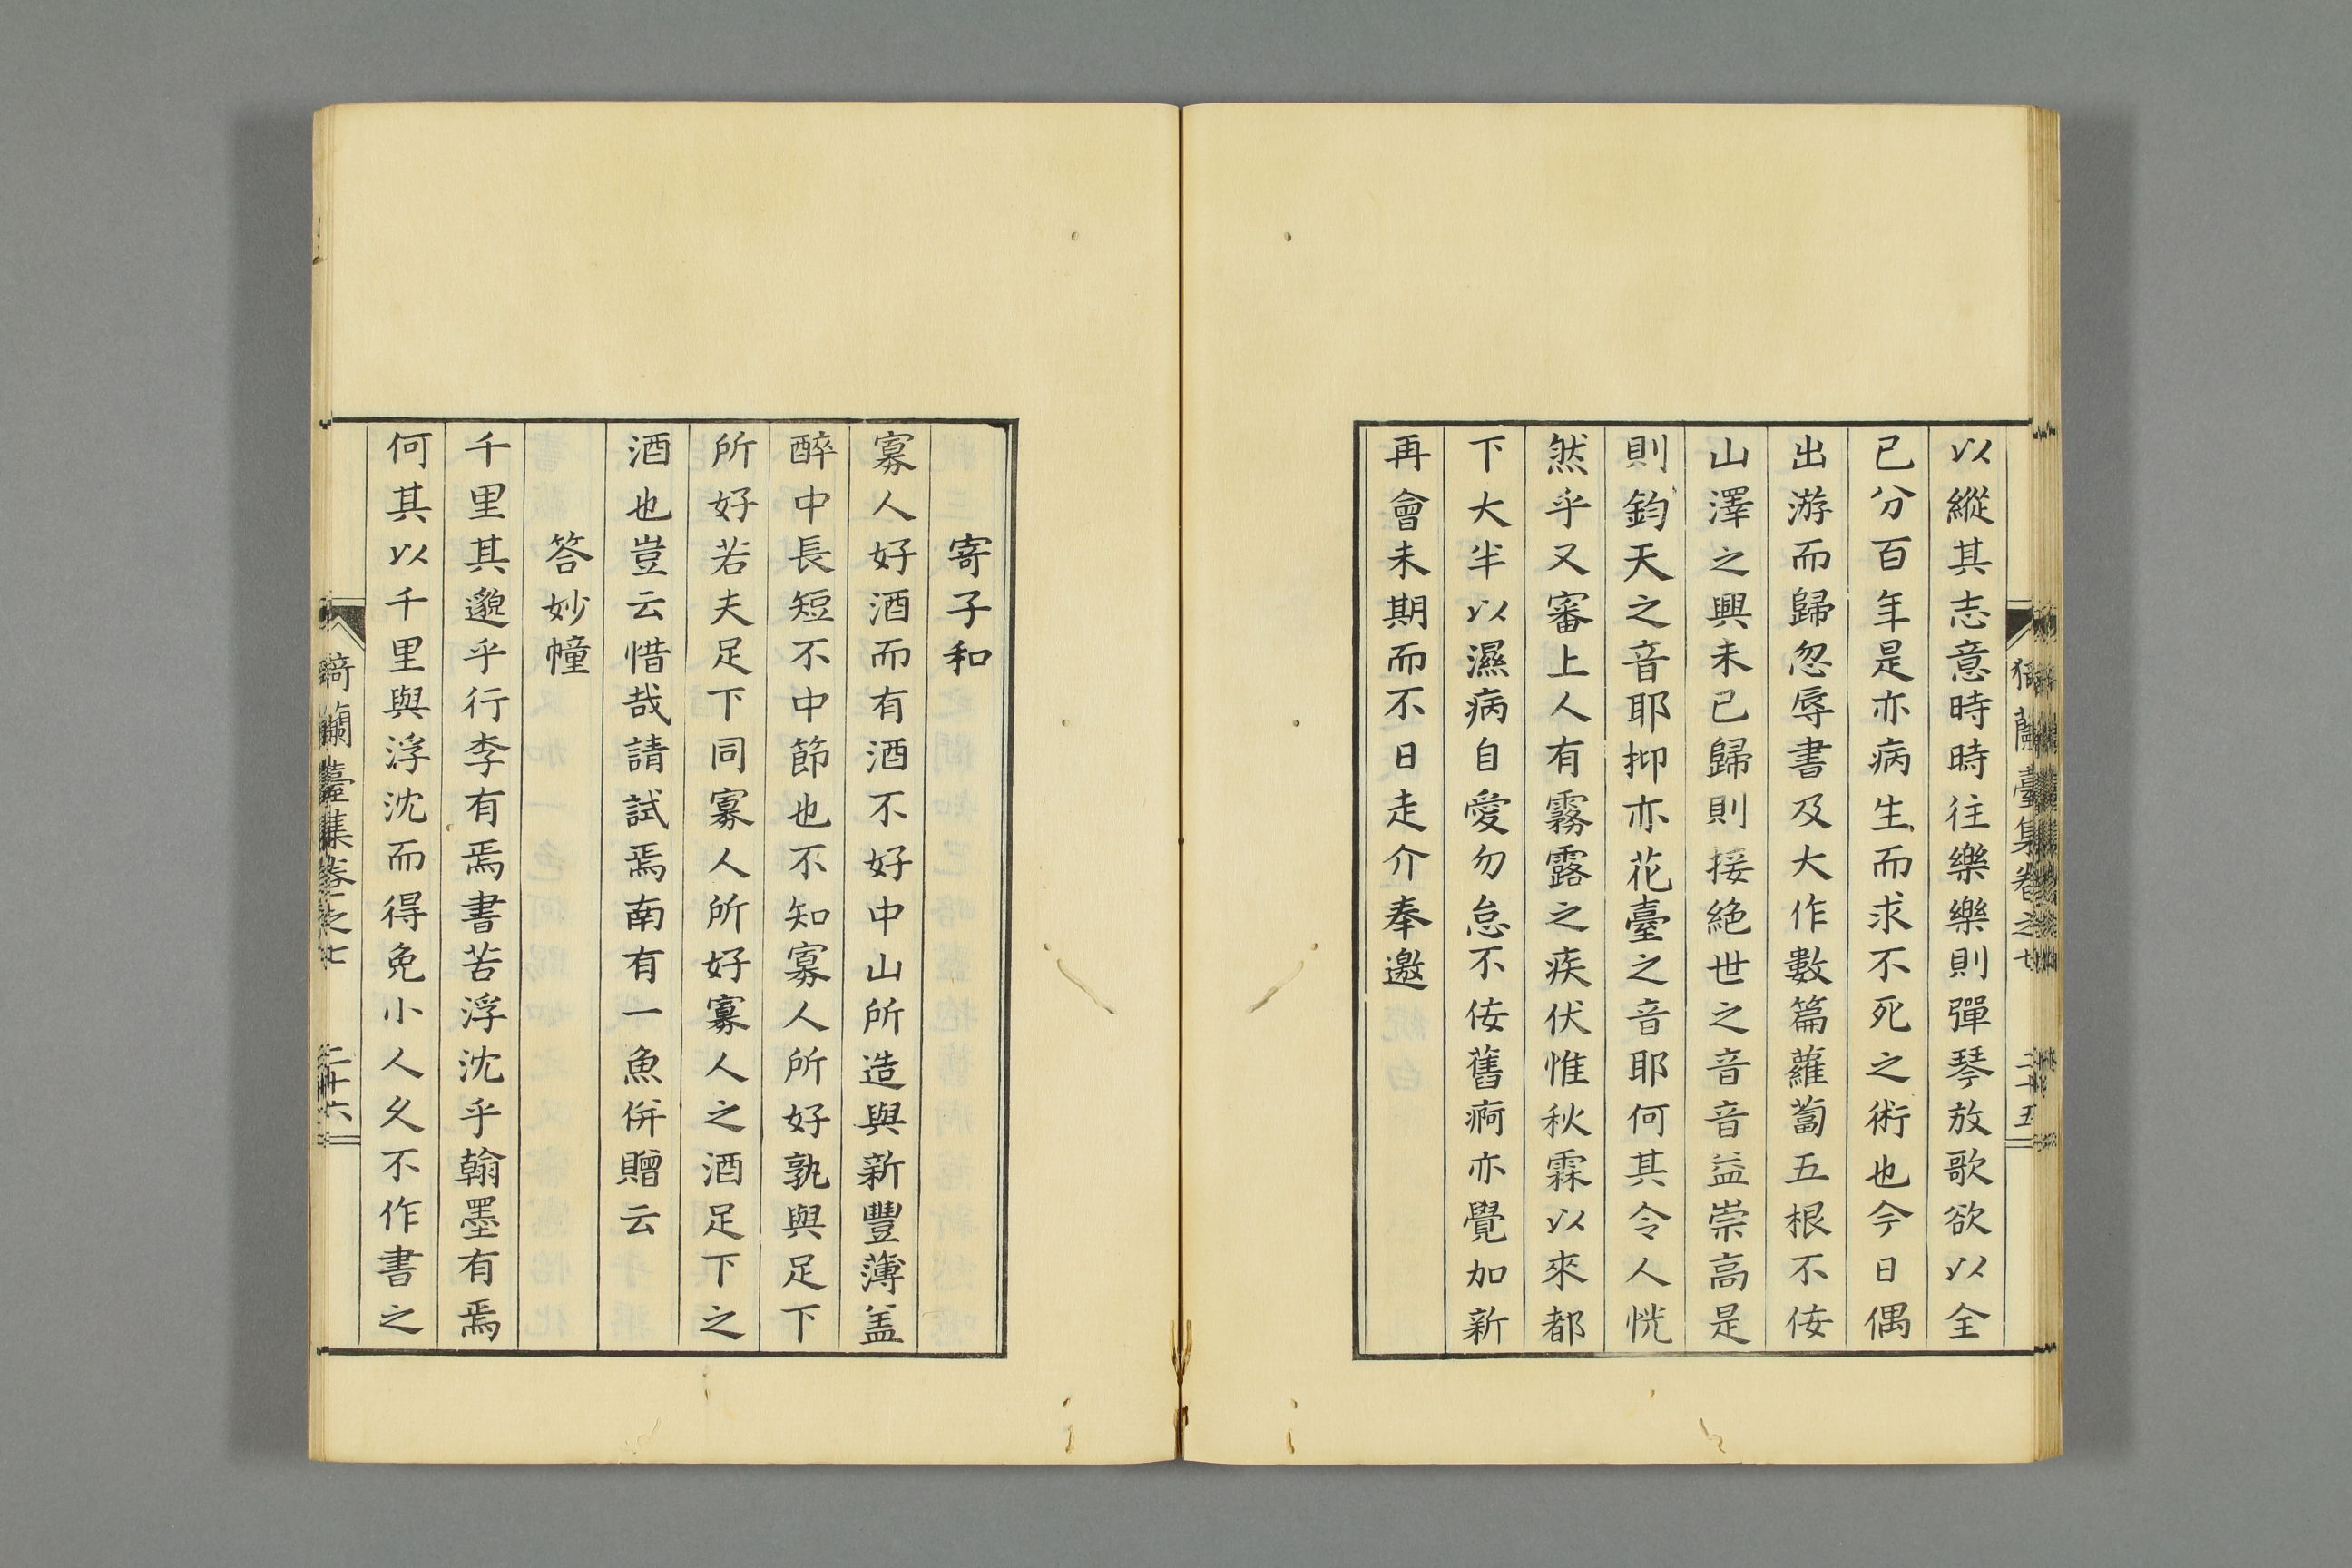 以縱其志意時時往樂樂則彈琴放歌欲以全
已分百年是亦病生而求不死之術也今日偶
出游而歸忽辱書及大作數篇蘿蔔五根不佞
山澤之興未已歸則接絕世之音音益崇高是
則鈞天之音耶抑亦花臺之音耶何其令人恍
然乎又審上人有霧露之疾伏惟秋霖以來都
下大半以濕病自愛勿怠不佞舊痾亦覺加新
再會未期而不日走介奉邀
寄子和
寡人好酒而有酒不好中山所造與新豐薄盖
醉中長短不中節也不知寡人所好孰與足下
所好若夫足下同寡人所好寡人之酒足下之
酒也豈云惜哉請試焉南有一魚併贈云
答妙幢
千里其邈乎行李有焉書苦浮沈乎翰墨有焉
何其以千里與浮沈而得免小人久不作書之
蘭臺集卷之七 二十六